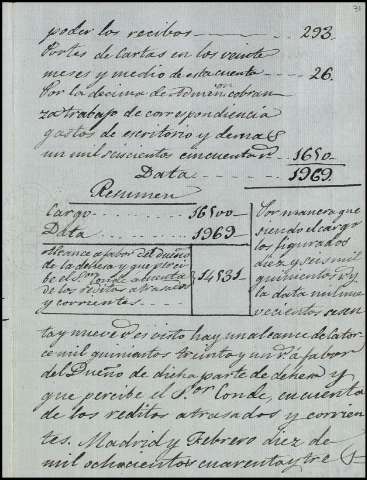 poder los recibos 293.
Portes de Cartas en los veinte
meses y medio de esta cuenta 26.
Por la decima de Admon cobran
za trabajo de correspondiencia
gastos de escritorio y demas
un mil seiscientos cincuenta rs 1650..
Data 1969.
Resumen
Cargo 16500..
Data 1969..
Alcance a fabor del dueño
de la dehesa y que perci
be el Sor Conde a cuenta
de los reditos atrasados
y corrientes
14531
Por manera que
siendo el cargo
los figurados
diez y seis mil
quinientos rs y
la data mil no
vecientos sesen
ta y nueve rs es visto hay un alcance de cator
ce mil quinientos treinta y un rs a fabor
del Dueño de dicha parte de dehesa y
que percibe el Sor Conde, en cuenta
de los reditos atrasados y corrien
tes. Madrid y Febrero diez de
mil ochocientos cuarenta y tres